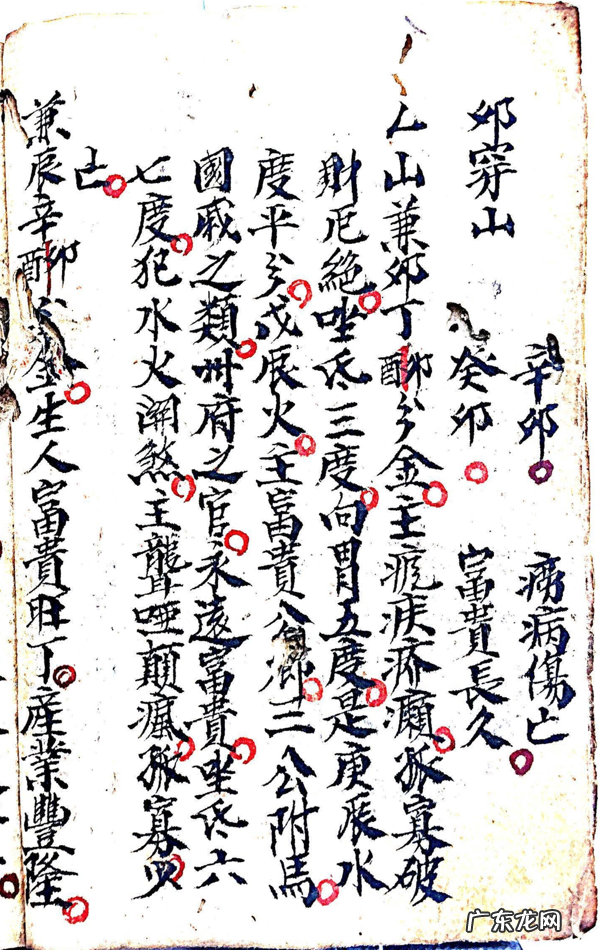 卯穿山
辛卯 癆病傷亡
癸卯 富貴長久
乙山兼卯丁卯酉分金主疾癆癲孤寡破
財厄絶坐氐三度向胃五度是庚辰水
度平分戊辰火主富貴公卿三公附馬
國戚之類州府之官永遠富貴坐氐六
七度犯水火関煞主聾啞顛瘋孤寡
亡
兼辰辛卯酉分金生人富貴旺丁產業豐隆
广东龙网